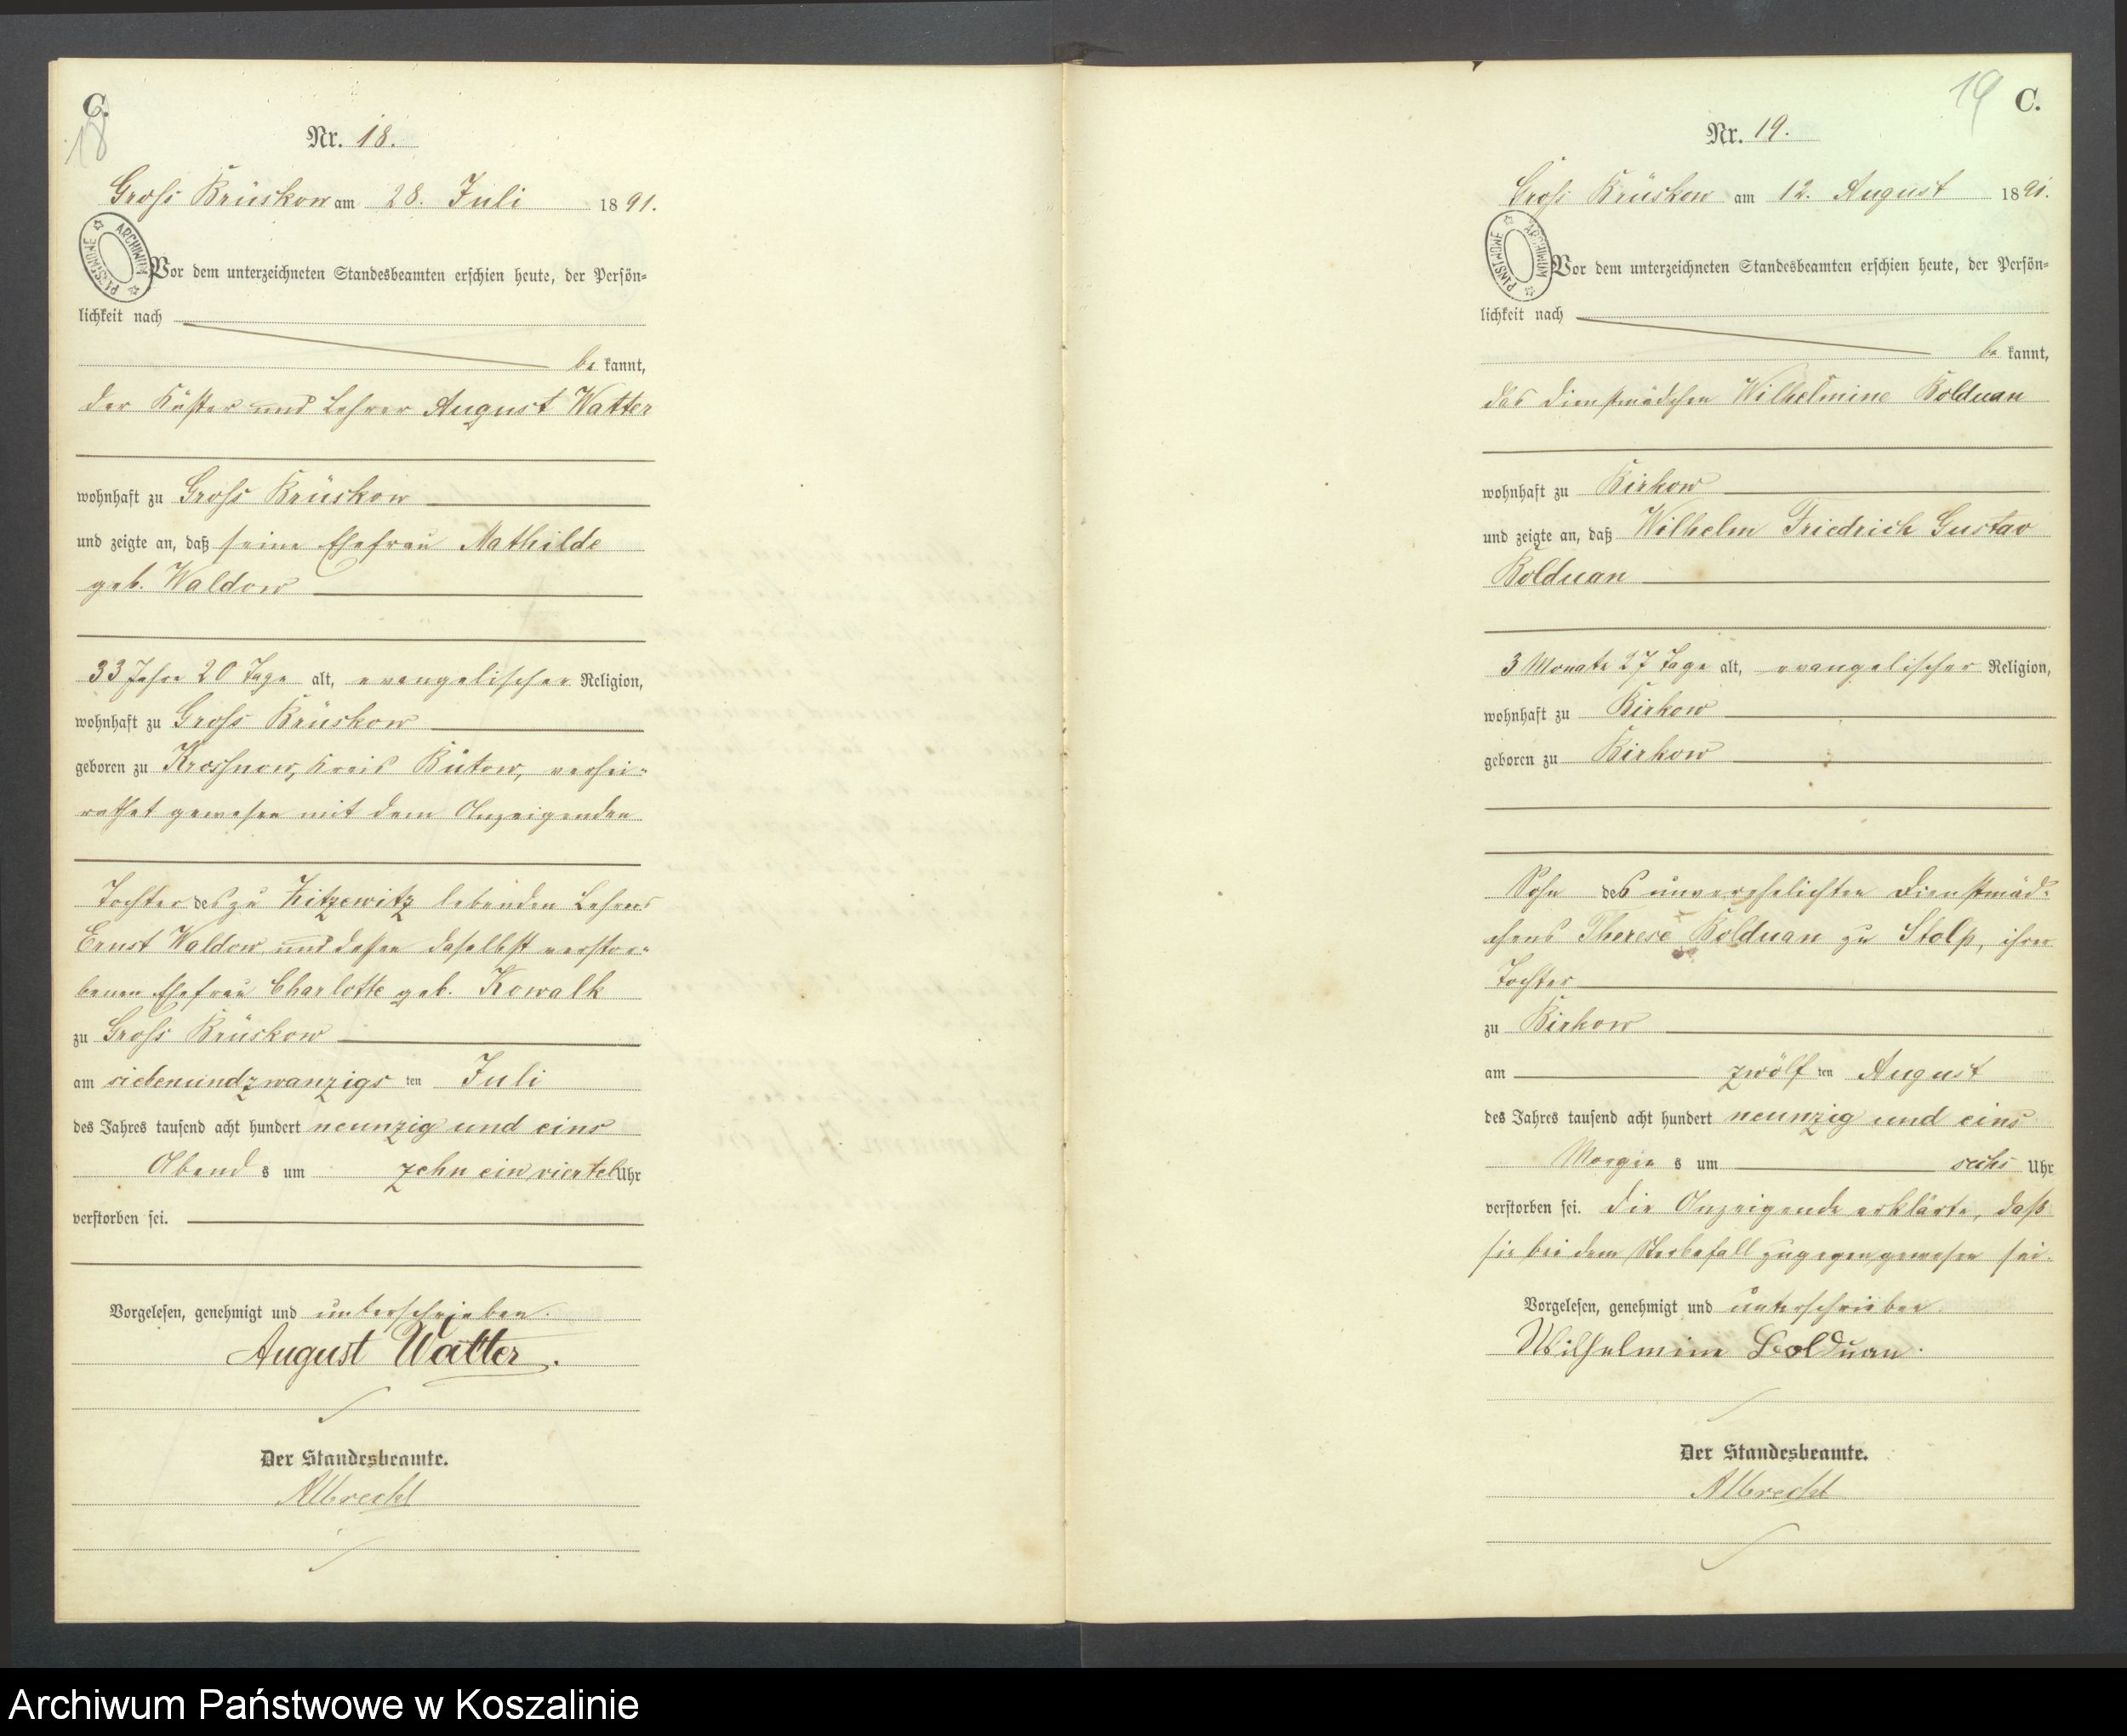 C.
18
Nr. 18.
Gross Brüskow am 28. Juli 1891.
ARCHIWUM PAŃSTWOWE
Vor dem unterzeichneten Standesbeamten erschien heute, der Persön-
lichkeit nach
be kannt,
der Küster und Lehrer August Watter
wohnhaft zu Gross Brüskow
und zeigte an, daß seine Ehefrau Mathilde
geb. Waldow
33 Jahre 20 Tage alt, evangelischer Religion,
wohnhaft zu Gross Brüskow
geboren zu Krossnow, Kreis Bütow, verhei-
rathet gewesen mit dem Anzeigenden
Tochter des zu Zitzewitz lebenden Lehrers
Ernst Waldow und dessen daselbst verstor-
benen Ehefrau Charlotte geb. Kowalk
zu Gross Brüskow
am siebenundzwanzigs ten Juli
des Jahres tausend acht hundert neunzig und eins
Abend s um zehn ein viertel Uhr
verstorben sei.
Vorgelesen, genehmigt und unterschrieben.
August Watter.
Der Standesbeamte.
Albrecht
19 C.
Nr. 19.
Gross Brüskow am 12. August 1891.
ARCHIWUM PAŃSTWOWE
Vor dem unterzeichneten Standesbeamten erschien heute, der Persön-
lichkeit nach
be kannt,
das Dienstmädchen Wilhelmine Bolduan
wohnhaft zu Birkow
und zeigte an, daß Wilhelm Friedrich Gustav
Bolduan
3 Monate 27 Tage alt, evangelischer Religion,
wohnhaft zu Birkow
geboren zu Birkow
Sohn des unverehelichten Dienstmäd-
chens Therese Bolduan zu Stolp, ihrer
Tochter
zu Birkow
am zwölf ten August
des Jahres tausend acht hundert neunzig und eins
Morgen s um sechs Uhr
verstorben sei. Die Anzeigende erklärte, daß
sie bei dem Sterbefall zugegen gewesen sei.
Vorgelesen, genehmigt und unterschrieben.
Wilhelmine Bolduan.
Der Standesbeamte.
Albrecht
Archiwum Państwowe w Koszalinie